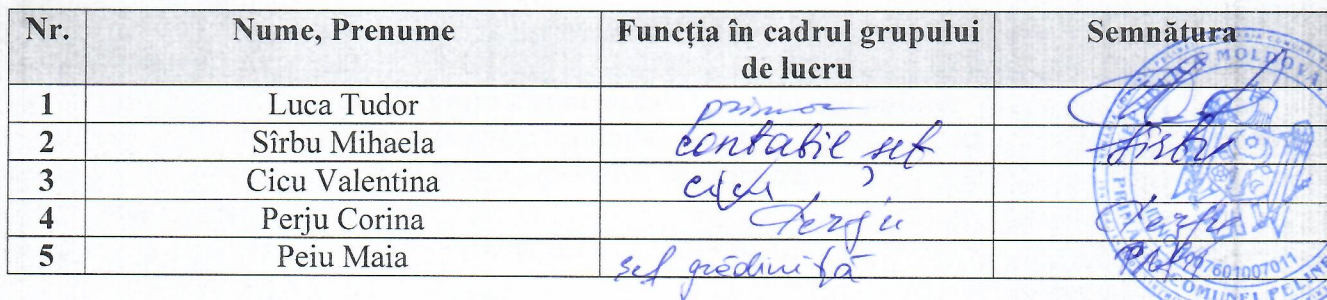 Nr. Nume, Prenume Funcția în cadrul grupului de lucru Semnătura
1 Luca Tudor primar
2 Sîrbu Mihaela contabil șef Sîrbu
3 Cicu Valentina Cicu
4 Perju Corina Perju Perju
5 Peiu Maia șef grădiniță
MOLDOVA
007601007011
COMUNEI PELINE